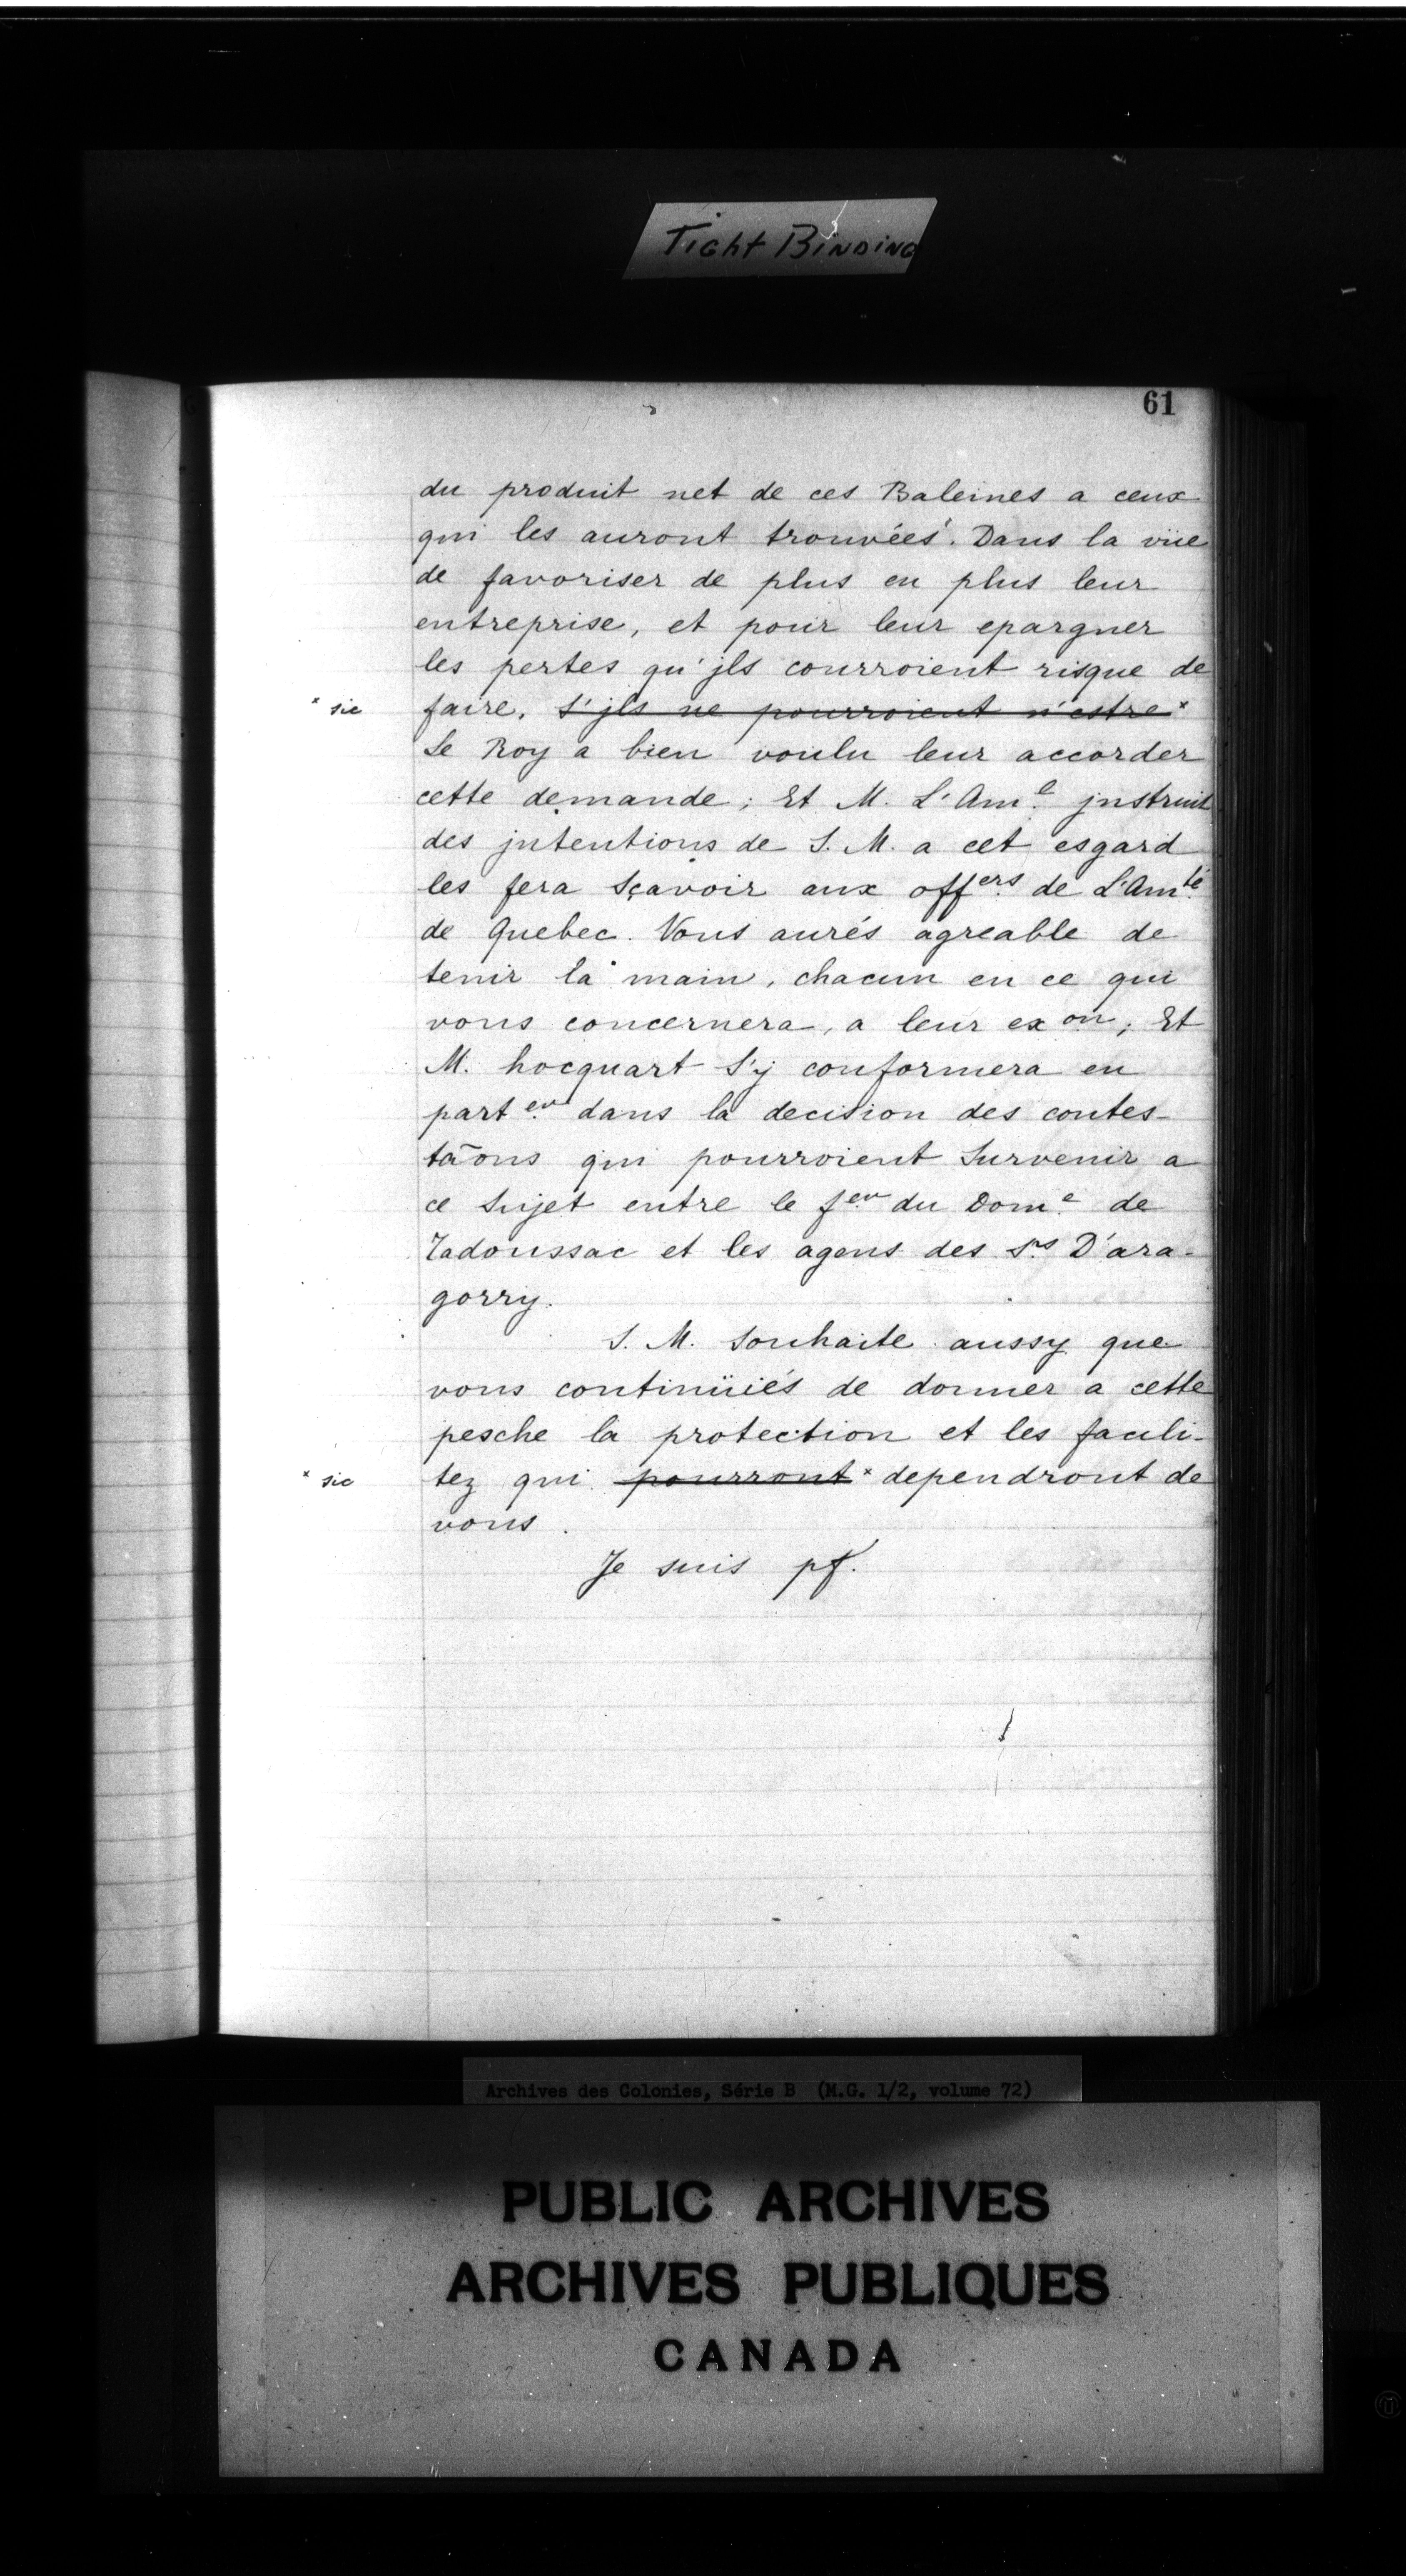 Tight Binding
61
du produit net de ces Baleines a ceux
qui les auront trouvéés. Dans la vüe
de favoriser de plus en plus leur
entreprise, et pour leur epargner
les pertes qu'jls courroient risque de
* sic faire, s'jls ne pourroient n'estre *
Le Roy a bien voulu leur accorder
cette demande; Et M. L'Am.l jnstruit
des jntentions de S. M. a cet esgard
les fera sçavoir aux off.ers de L'Am.té
de Quebec. Vous aurés agreable de
tenir la main, chacun en ce qui
vous concernera, a leur ex on; Et
M. hocquart s'y conformera en
part.er dans la decision des contes-
tãons qui pourroient survenir a
ce sujet entre le f.er du Dom.e de
Tadoussac et les agens des S.rs D'ara-
gorry.
S. M. souhaite aussy que
vous continüiés de donner a cette
pesche la protection et les facili-
* sic tez qui pourront * dependront de
vous.
Je suis pf.
Archives des Colonies, Série B (M.G. 1/2, volume 72)
PUBLIC ARCHIVES
ARCHIVES PUBLIQUES
CANADA